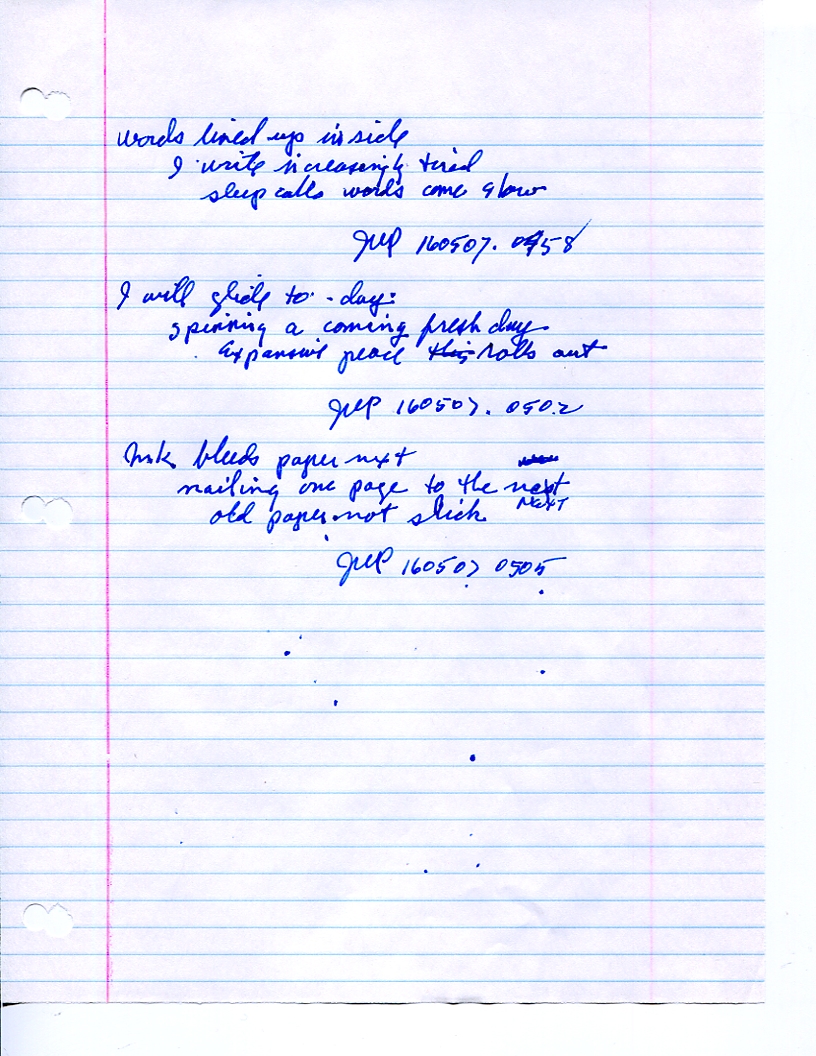 words lined up inside
I write increasingly tired
sleep calls words come slow
JMP 160507. 0458
I will glide to-day:
spinning a coming fresh day
Expansive peace this rolls out
JMP 160507. 0502
Ink bleeds paper next
mailing one page to the next
NEXT
old paper not slick
JMP 160507 0505